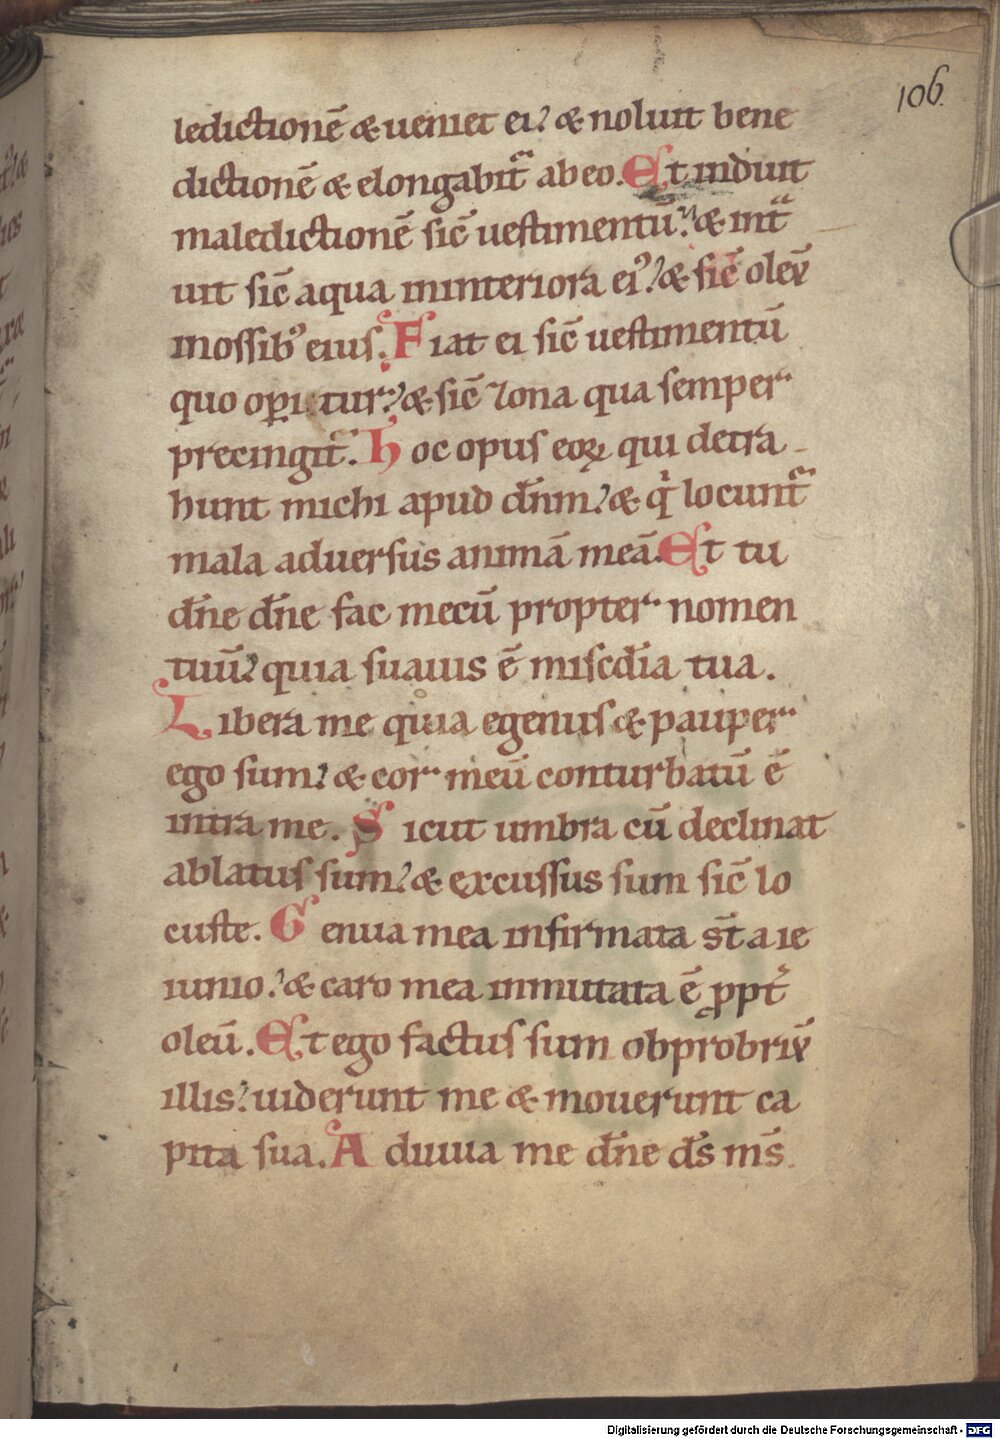 106
ledictionē & ueniet ei? & noluit bene
dictionē & elongabitᷓ ab eo. Et induit
maledictionē sic̄ uestimentū? & intᷓ
uit sic̄ aqua in interiora eiꝰ? & sic̄ oleū
in ossibꝰ eius. Fiat ei sic̄ uestimentū
quo oꝑitur? & sic̄ zona qua semper
precingitᷓ. Hoc opus eoꝝ qui detra
hunt michi apud dn̄m? & qi locuntᷓ
mala aduersus animā meā. Et tu
dn̄e dn̄e fac mecū propter nomen
tuū? quia suauis ē misc̄dia tua.
Libera me quia egenus & pauper
ego sum? & cor meū conturbatū ē
intra me. Sicut umbra cū declinat
ablatus sum? & excussus sum sic̄ lo
custe. Genua mea infirmata st̄ a ie
iunio? & caro mea inmutata ē ꝓpt̄
oleū. Et ego factus sum obprobriū
illis? uiderunt me & mouerunt ca
pita sua. Adiuua me dn̄e ds̄ ms̄
Digitalisierung gefördert durch die Deutsche Forschungsgemeinschaft - DFG